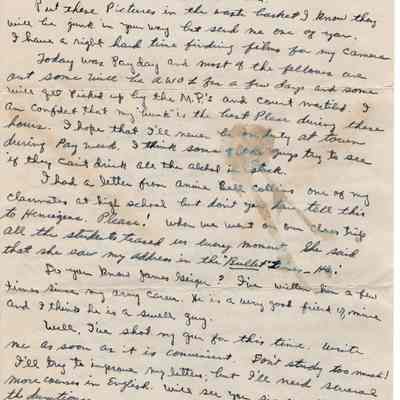 Put these Pictures in the waste basket I know they
will be junk in your way but send me one of your.
I have a right hard time finding films for my camera
Today was Pay day and most of the fellows are
out some will be AWOL for a few days and some
will get Picked up by the M.P.'s and court martiled. I
am confidet that my "bunk" is the best Place during these
hours. I hope that I'll never be on duty at town
during Pay week. I think some of the guys try to see
if they can't drink all the alchol in stock.
I had a letter from Annie Bell Collins one of my
classmates at high school but don't you dare tell this
to Please! When we went on our class trip
all the students teased us every moment. She said
that she saw my address in the "Bullet" Ha!
Do you know James Geiger? I've written him a few
times since my army career. He is a very good friend of mine
and I think he is a swell guy.
Well, I've shot my gun for this time. Write
me as soon as it is convenient. Don't study too much!
I'll try to improve my letters, but I'll need several
more courses in English. Will see you
the duration